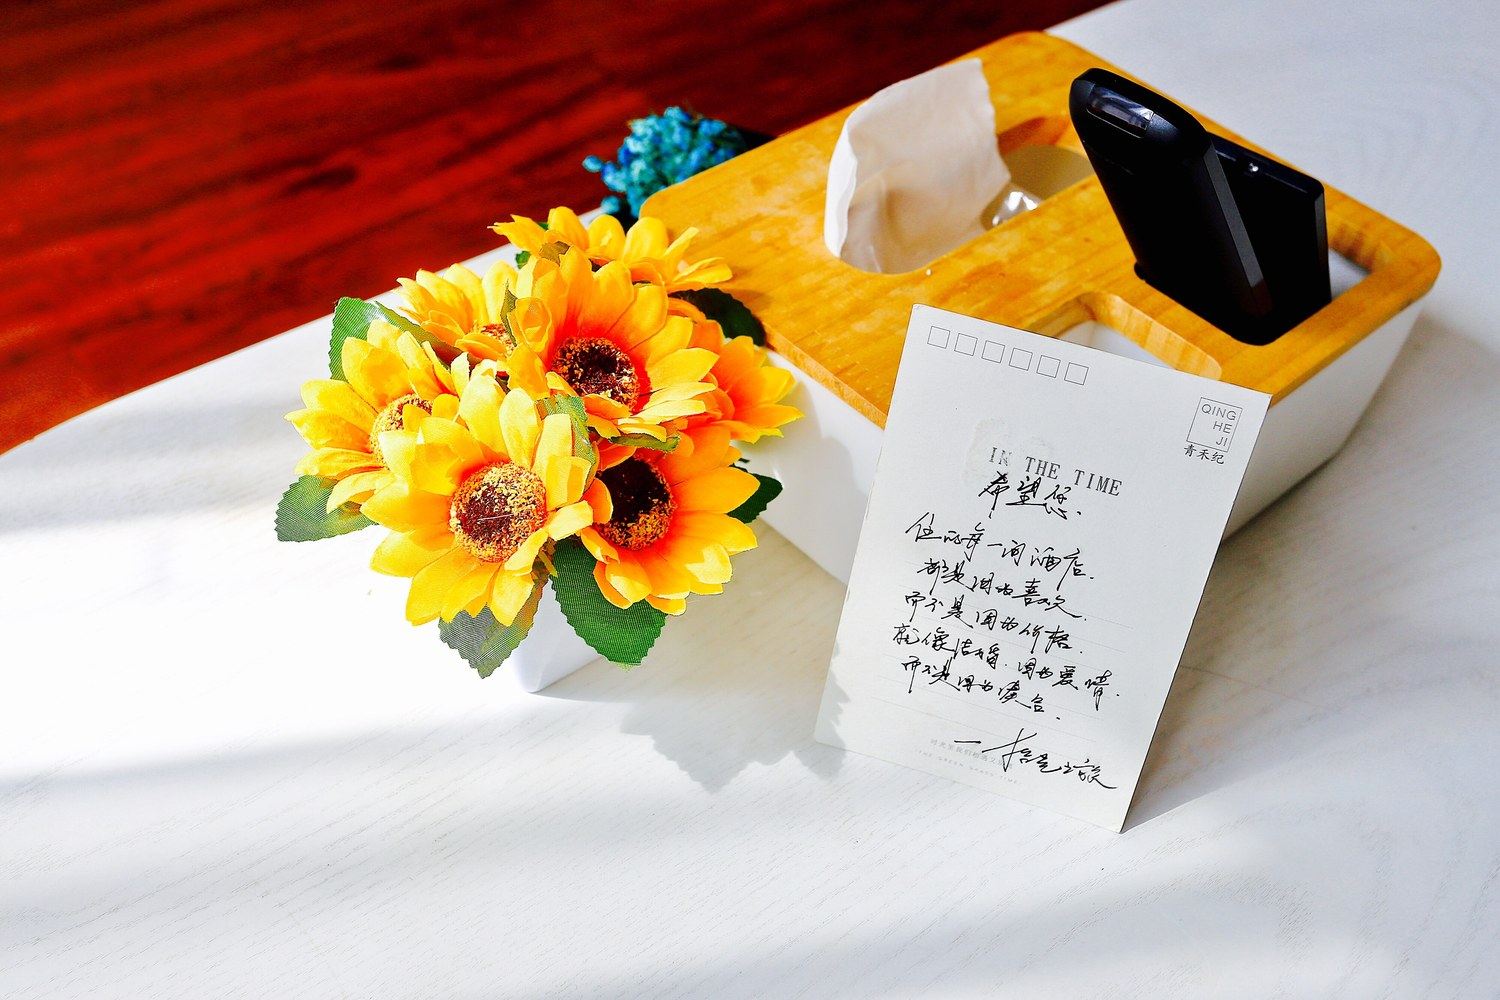 QING
HE
JI
青禾纪
IN THE TIME
希望您.
住的每一间酒店.
都是因为喜欢.
而不是因为价格.
就像结婚.因为爱情.
而不是因为凑合.